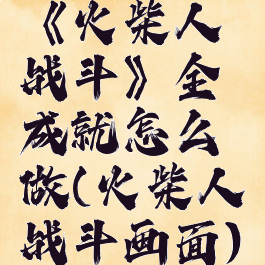 《火柴人
战斗》全
成就怎么
做(火柴人
战斗画面)